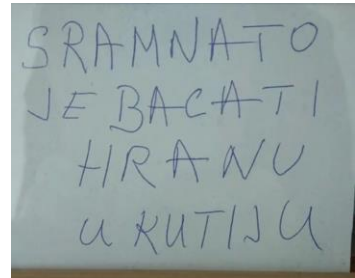 SRAMNATO
JE BACATI
HRANU
U KUTIJU